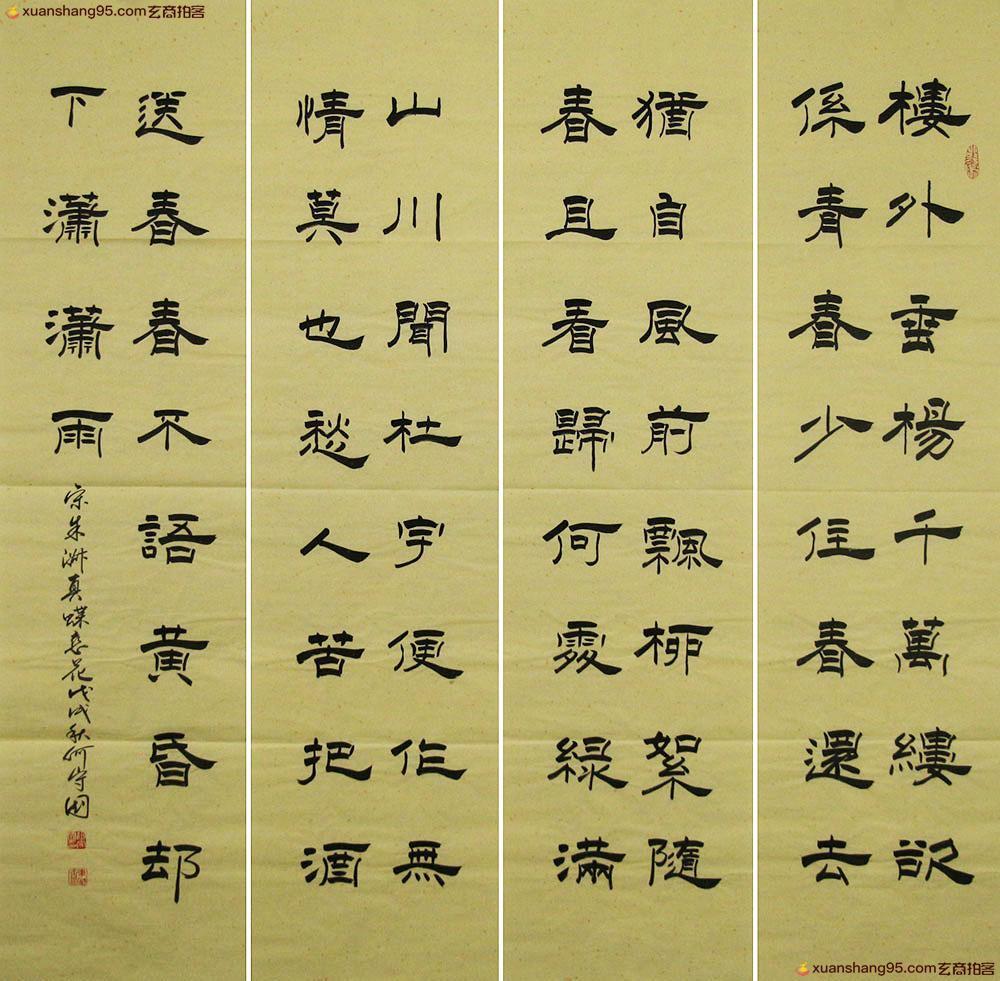 xuanshang95.com玄商拍客
樓外垂楊千萬縷欲
係青春少住春還去
猶自風前飄柳絮隨
春且看歸何處綠滿
山川聞杜宇便作無
情莫也愁人苦把酒
送春春不語黃昏却
下瀟瀟雨
宋朱淑真蝶恋花戊戌秋何守國
xuanshang95.com玄商拍客